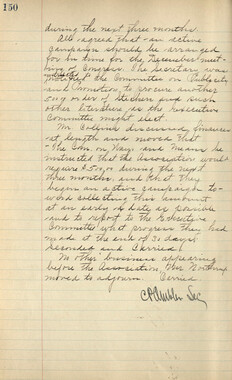 150
during the next three months.
All agreed that an active
campaign should be arranged
for in time for the December meet-
ing of Congress. The Secretary was
instructed the Committee on Publicity
and Promotion, to procure another
500 order of stickers and such
other literature as the Executive
Committee might elect.
Mr. Collins discussed finances
at length and moved that
"The Com. on Ways and Means be
instructed that the Association would
require $500.00 during the next
three months, and that they
begin an active campaign to-
ward collecting this amount
at an early a date as possible
and to report to the Executive
Committee what progress they had
made at the end of 30 days.
Seconded and Carried.
No other business appearing
before the Association Mr.
moved to adjourn. Carried
Sec